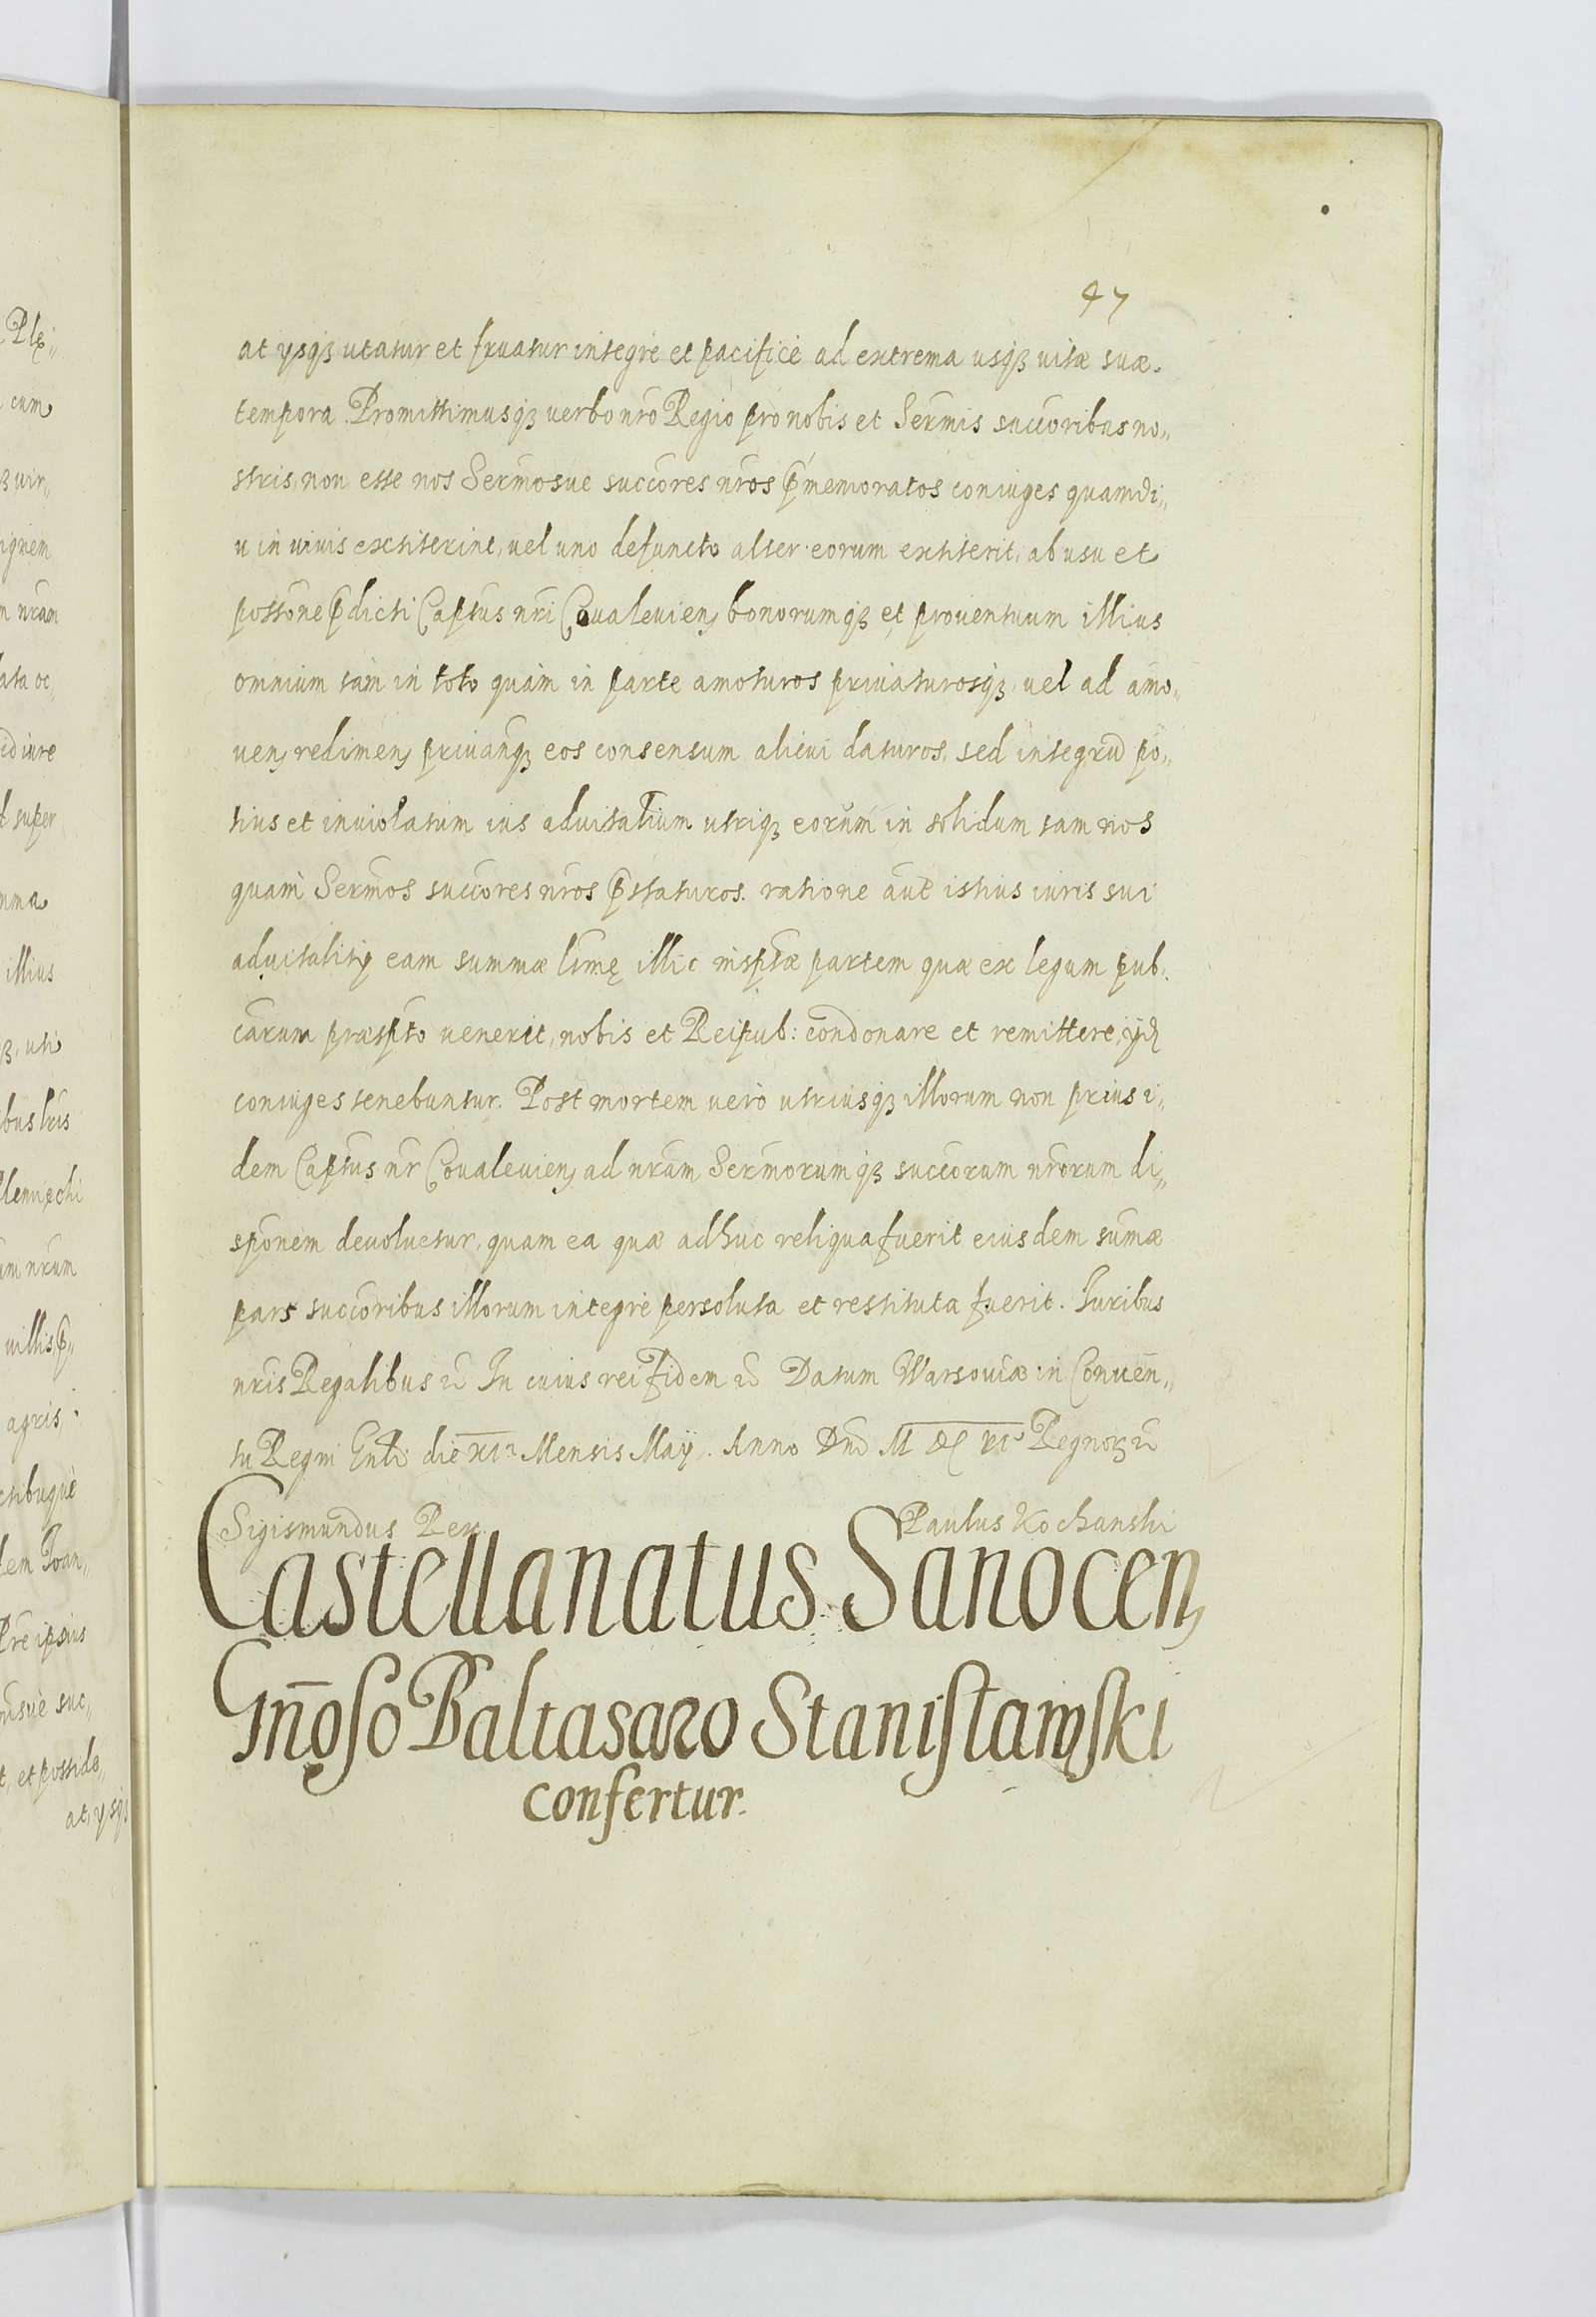 47
at ysqꝫ utatur et fruatur integre et pacifice ad extrema usqꝫ vitæ suæ.
tempora. Promittimusqꝫ verbo nr̃o Regio pro nobis et Serm̃is succoribus no„
stris, non esse nos Serm̃osve succores nr̃os p̃memoratos coniuges quamdi„
u in vivis extiterint, vel uno defuncto alter eorum extiterit, ab usu et
possõne p̃dicti Captus nr̃i Covalevien, bonorumqꝫ et proventuum illius
omnium tàm in toto quàm in parte amoturos privaturosqꝫ, vel ad amo„
ven, redimen, privanqꝫ eos consensum alicui daturos, sed integrũ po„
tius et inviolatum ius advitalium utriqꝫ eorum in solidum tam nos
quam Serm̃os succores nr̃os p̃staturos. ratione aũt istius iuris sui
advitalitij eam summæ illic partem quæ ex legum pub„
carum præspto venerit, nobis et Reipub: condonare et remittere, ijd
coniuges tenebuntur. Post mortem verò utriusqꝫ illorum non prius i„
dem Captus nr̃ Covalevien, ad nr̃am Serm̃orumqꝫ succorum nr̃orum di„
sponem devolvetur, quam ea quæ adhuc reliqua fuerit eiusdem sum̃æ
pars succoribus illorum integrè persoluta et restituta fuerit. Iuribus
nr̃is Regalibus &c̃ In cuius rei fidem &c̃ Datum Warsoviæ in Conven„
tu Regni Gnli die XI Mensis Maij. Anno Dnĩ M DC XI Regnoꝝ &c̃
Sigismundus Rex. Paulus Kochanski
Castellanatus Sanocen,
Gn̄oso Baltasaro Stanisławski
confertur.
Plę„
cum
ꝫ vir„
iquem
m nr̃am
ata oc,
id iure
super
mma
illius
ꝫ, uti
ibus lr̃is
nr̃um
villis p̃„
agris,
ctibuquè
dem Ioan„
Pr̃e ipsius
suc„
t, et posside„
at, ysqꝫ